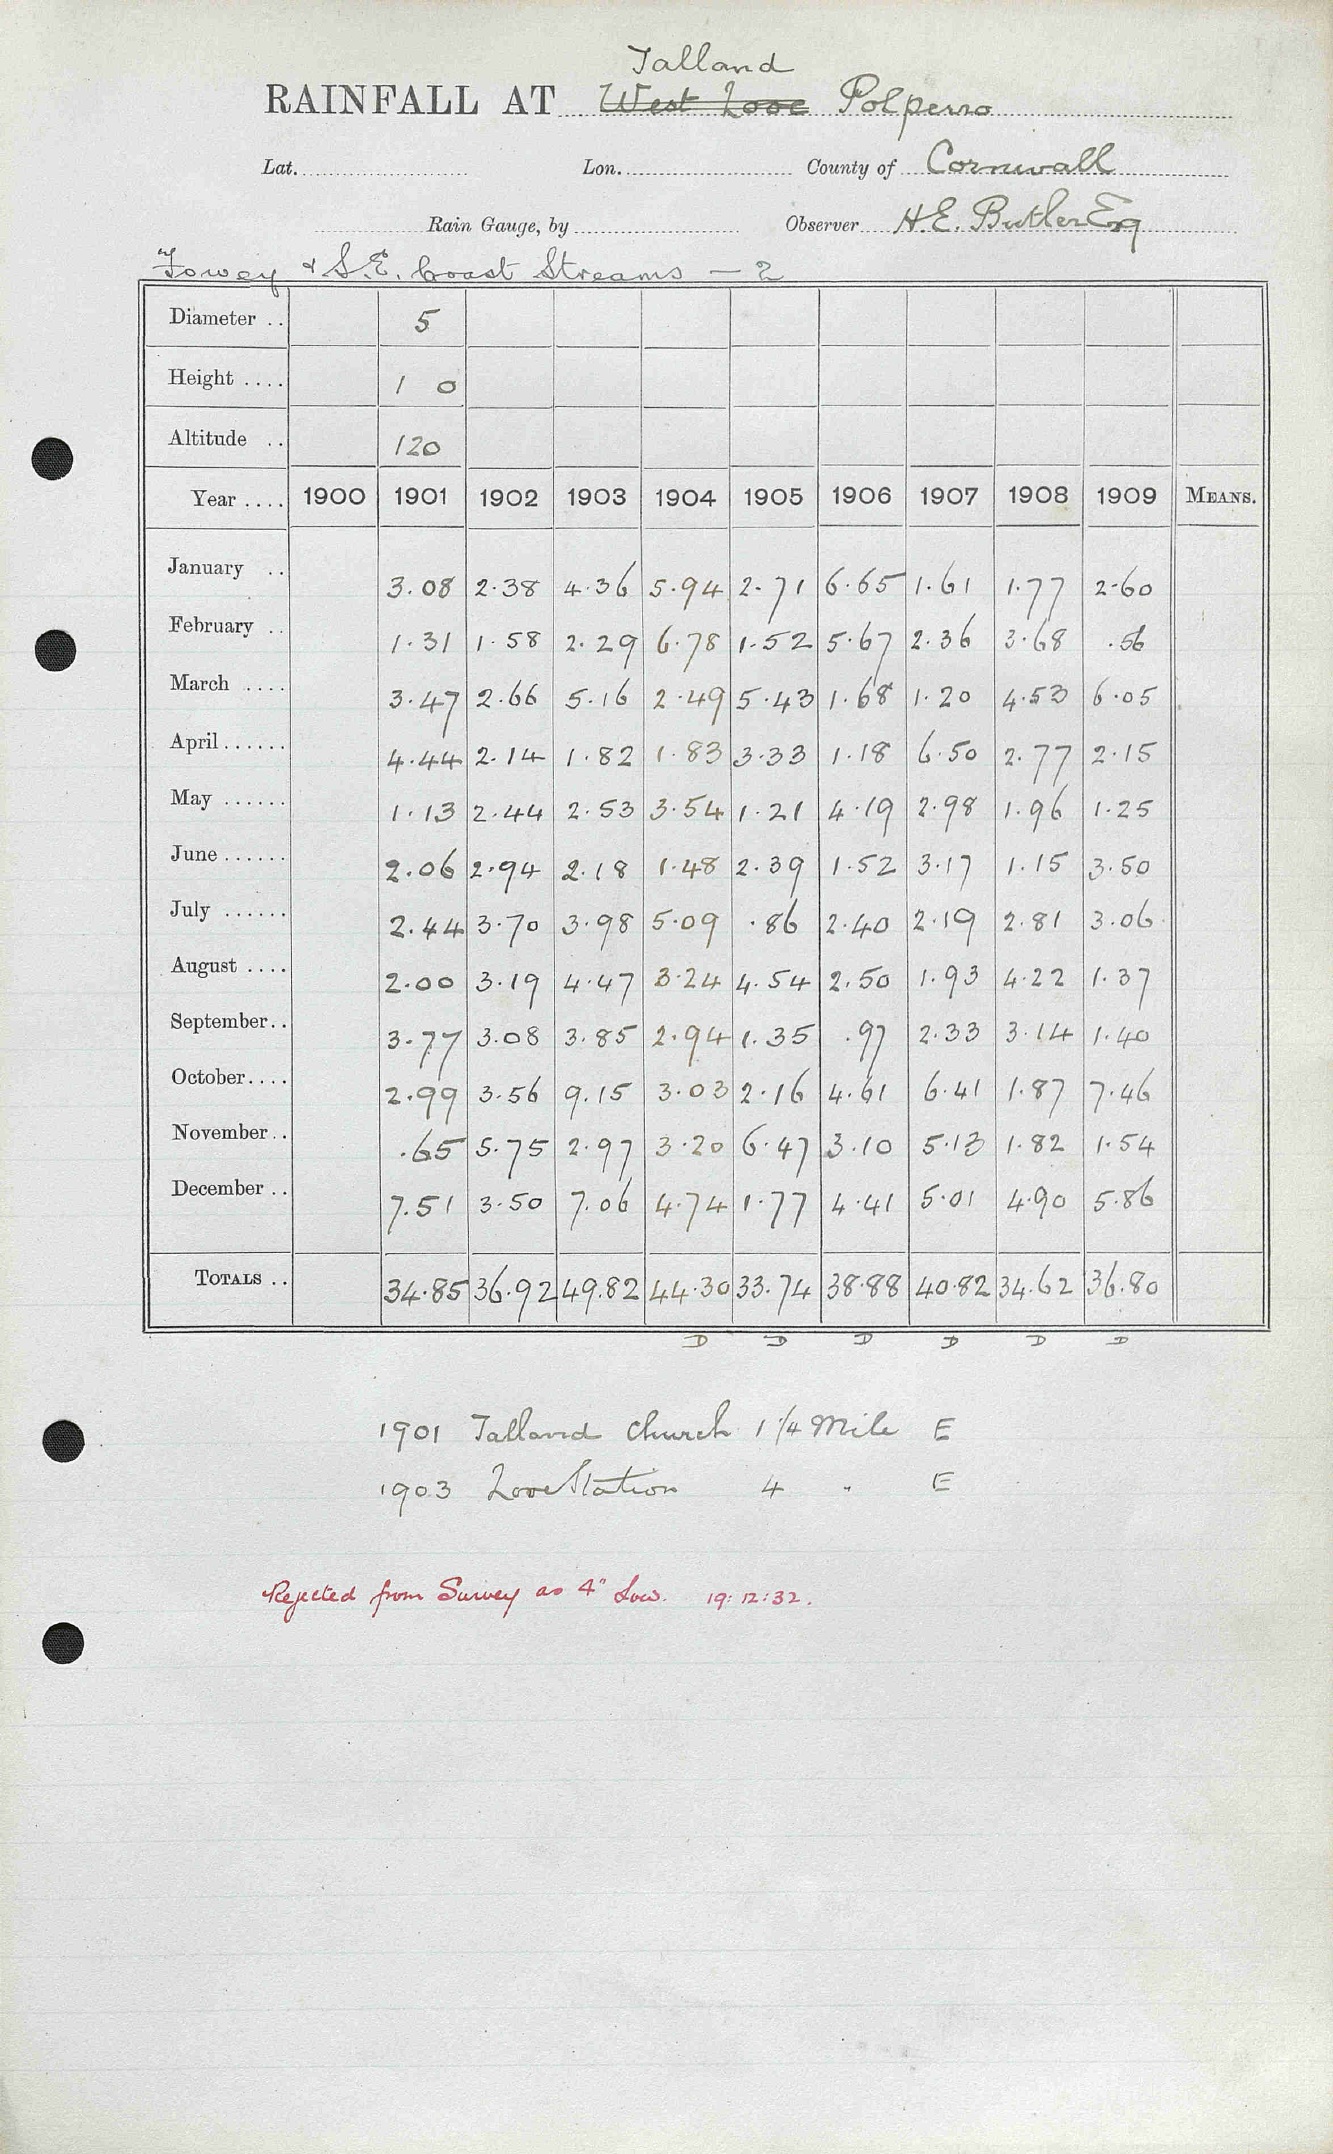 Talland
RAINFALL AT West Looe Polperro
Lat. Lon. County of Cornwall
Rain Gauge, by Observer H.E. Butler Esq
Fowey & S.E. Coast Streams — 2
Diameter .. 5
Height .... 1 0
Altitude .. 120
Year .... 1900 1901 1902 1903 1904 1905 1906 1907 1908 1909 MEANS.
January .. 3.08 2.38 4.36 5.94 2.71 6.65 1.61 1.77 2.60
February .. 1.31 1.58 2.29 6.78 1.52 5.67 2.36 3.68 .56
March .... 3.47 2.66 5.16 2.49 5.43 1.68 1.20 4.53 6.05
April ...... 4.44 2.14 1.82 1.83 3.33 1.18 6.50 2.77 2.15
May ...... 1.13 2.44 2.53 3.54 1.21 4.19 2.98 1.96 1.25
June ...... 2.06 2.94 2.18 1.48 2.39 1.52 3.17 1.15 3.50
July ...... 2.44 3.70 3.98 5.09 .86 2.40 2.19 2.81 3.06
August .... 2.00 3.19 4.47 3.24 4.54 2.50 1.93 4.22 1.37
September.. 3.77 3.08 3.85 2.94 1.35 .97 2.33 3.14 1.40
October.... 2.99 3.56 9.15 3.03 2.16 4.61 6.41 1.87 7.46
November.. .65 5.75 2.97 3.20 6.47 3.10 5.13 1.82 1.54
December .. 7.51 3.50 7.06 4.74 1.77 4.41 5.01 4.90 5.86
TOTALS .. 34.85 36.92 49.82 44.30 33.74 38.88 40.82 34.62 36.80
D D D D D D
1901 Talland Church 1 1/4 Mile E
1903 Looe Station 4 " E
Rejected from Survey as 4" Low. 19:12:32.